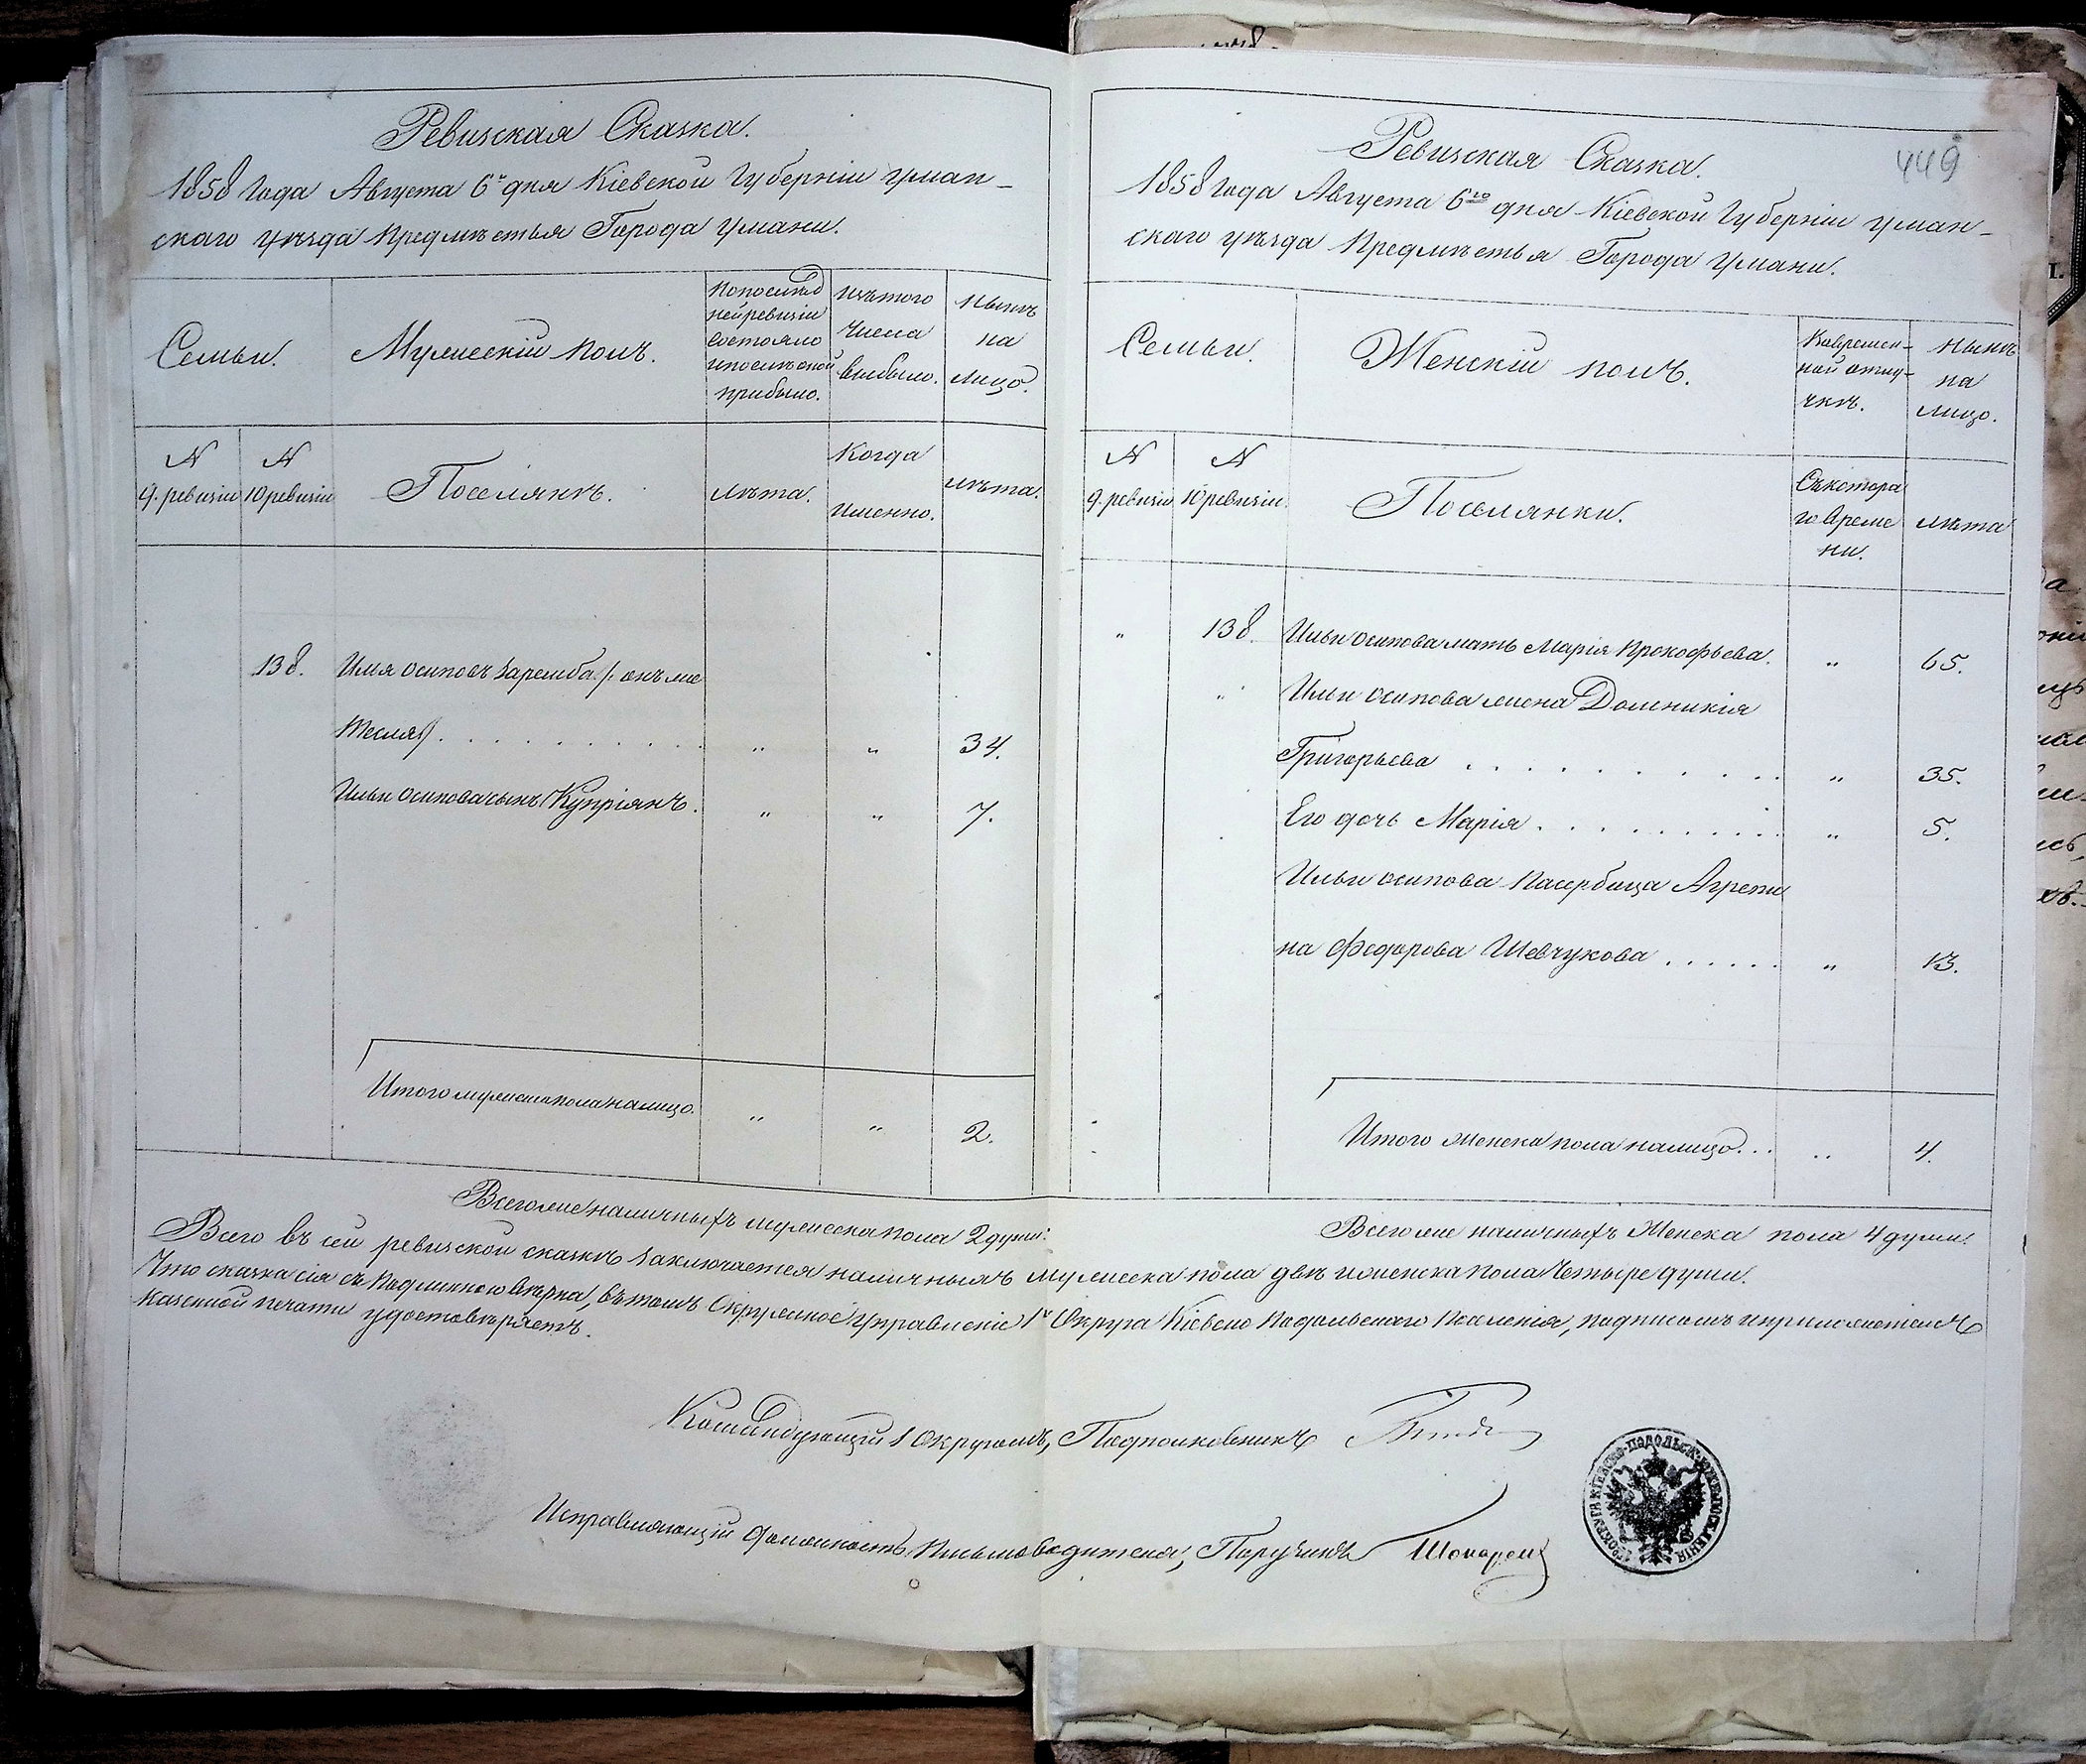 Ревизская Сказка.
1858 Года Августа 6го дня Кіевской Губерніи Уман-
скаго уѣзда Предмѣстья Города Умани.
Семьи.
Мужескій полъ.
По послѣд
ней ревизіи
состояло
и послѣ оной
прибыло.
Изъ того
числа
выбыло.
Нынѣ
на
лицо.
N
9. ревизіи
N
10 ревизіи
Поселянъ.
лѣта.
Когда
именно.
лѣта.
138.
Илія Осиповъ Заремба /: онъ же
Тесля :/
"
"
34.
Ильи Осипова сынъ Купріянъ.
"
"
7.
Итого мужеска пола на лицо.
"
"
2.
Всего же наличныхъ мужеска пола 2 души:
449
Ревизская Сказка.
1858 Года Августа 6го дня Кіевской Губерніи Уман-
скаго уѣзда Предмѣстья Города Умани.
Семьи.
Женскій полъ.
Во времен-
ной отлу-
чкѣ.
Нынѣ
на
лицо.
N
9. ревизіи
N
10 ревизіи.
Поселянки.
Съ котора
го време
ни.
лѣта
"
138.
Ильи Осипова мать Марія Прокофьева.
"
65.
"
Ильи Осипова жена Доминикія
Григорьева
"
35.
Его дочь Марія
"
5.
Ильи Осипова пасербица Агрепи
на Федорова Шевчукова
"
13.
Итого женска пола на лицо...
"
4.
Всего же наличныхъ Женска пола 4 души.
Всего въ сей ревизской сказкѣ заключается наличныхъ мужеска пола двѣ и женска пола четыре души.
Что сказка сія съ подлинною вѣрна, въ томъ Окружное Управленіе 1го Округа Кіевско Подольскаго Поселенія, подписомъ и приложеніемъ
казенной печати удостовѣряетъ.
Командующій 1 Округомъ, Подполковникъ
Исправляющій должность Письмоводителя, Поручикъ